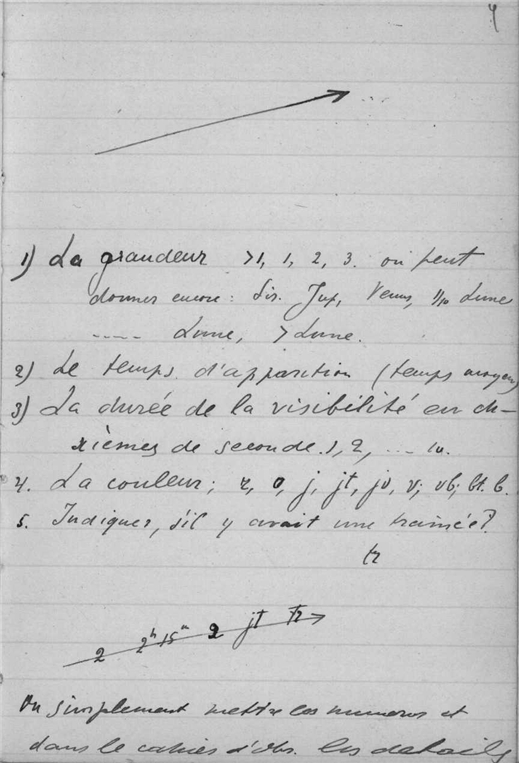 4
1) La grandeur >1, 1, 2, 3. on peut
donner encore: Sir. Jup, Venus, 1/10 Lune
..... Lune, > Lune.
2) Le temps d'apparition (temps moyen)
3) La durée de la visibilité en di-
xièmes de seconde. 1, 2, ... 10.
4. La couleur; r, o, j, jt, jv, v; vb; bt. b.
5. Indiquer, s'il y avait une trainée?
tr
2 2h 15m 2 jt tr
On simplement mettre les numeros et
dans le cahier d'obs. les details